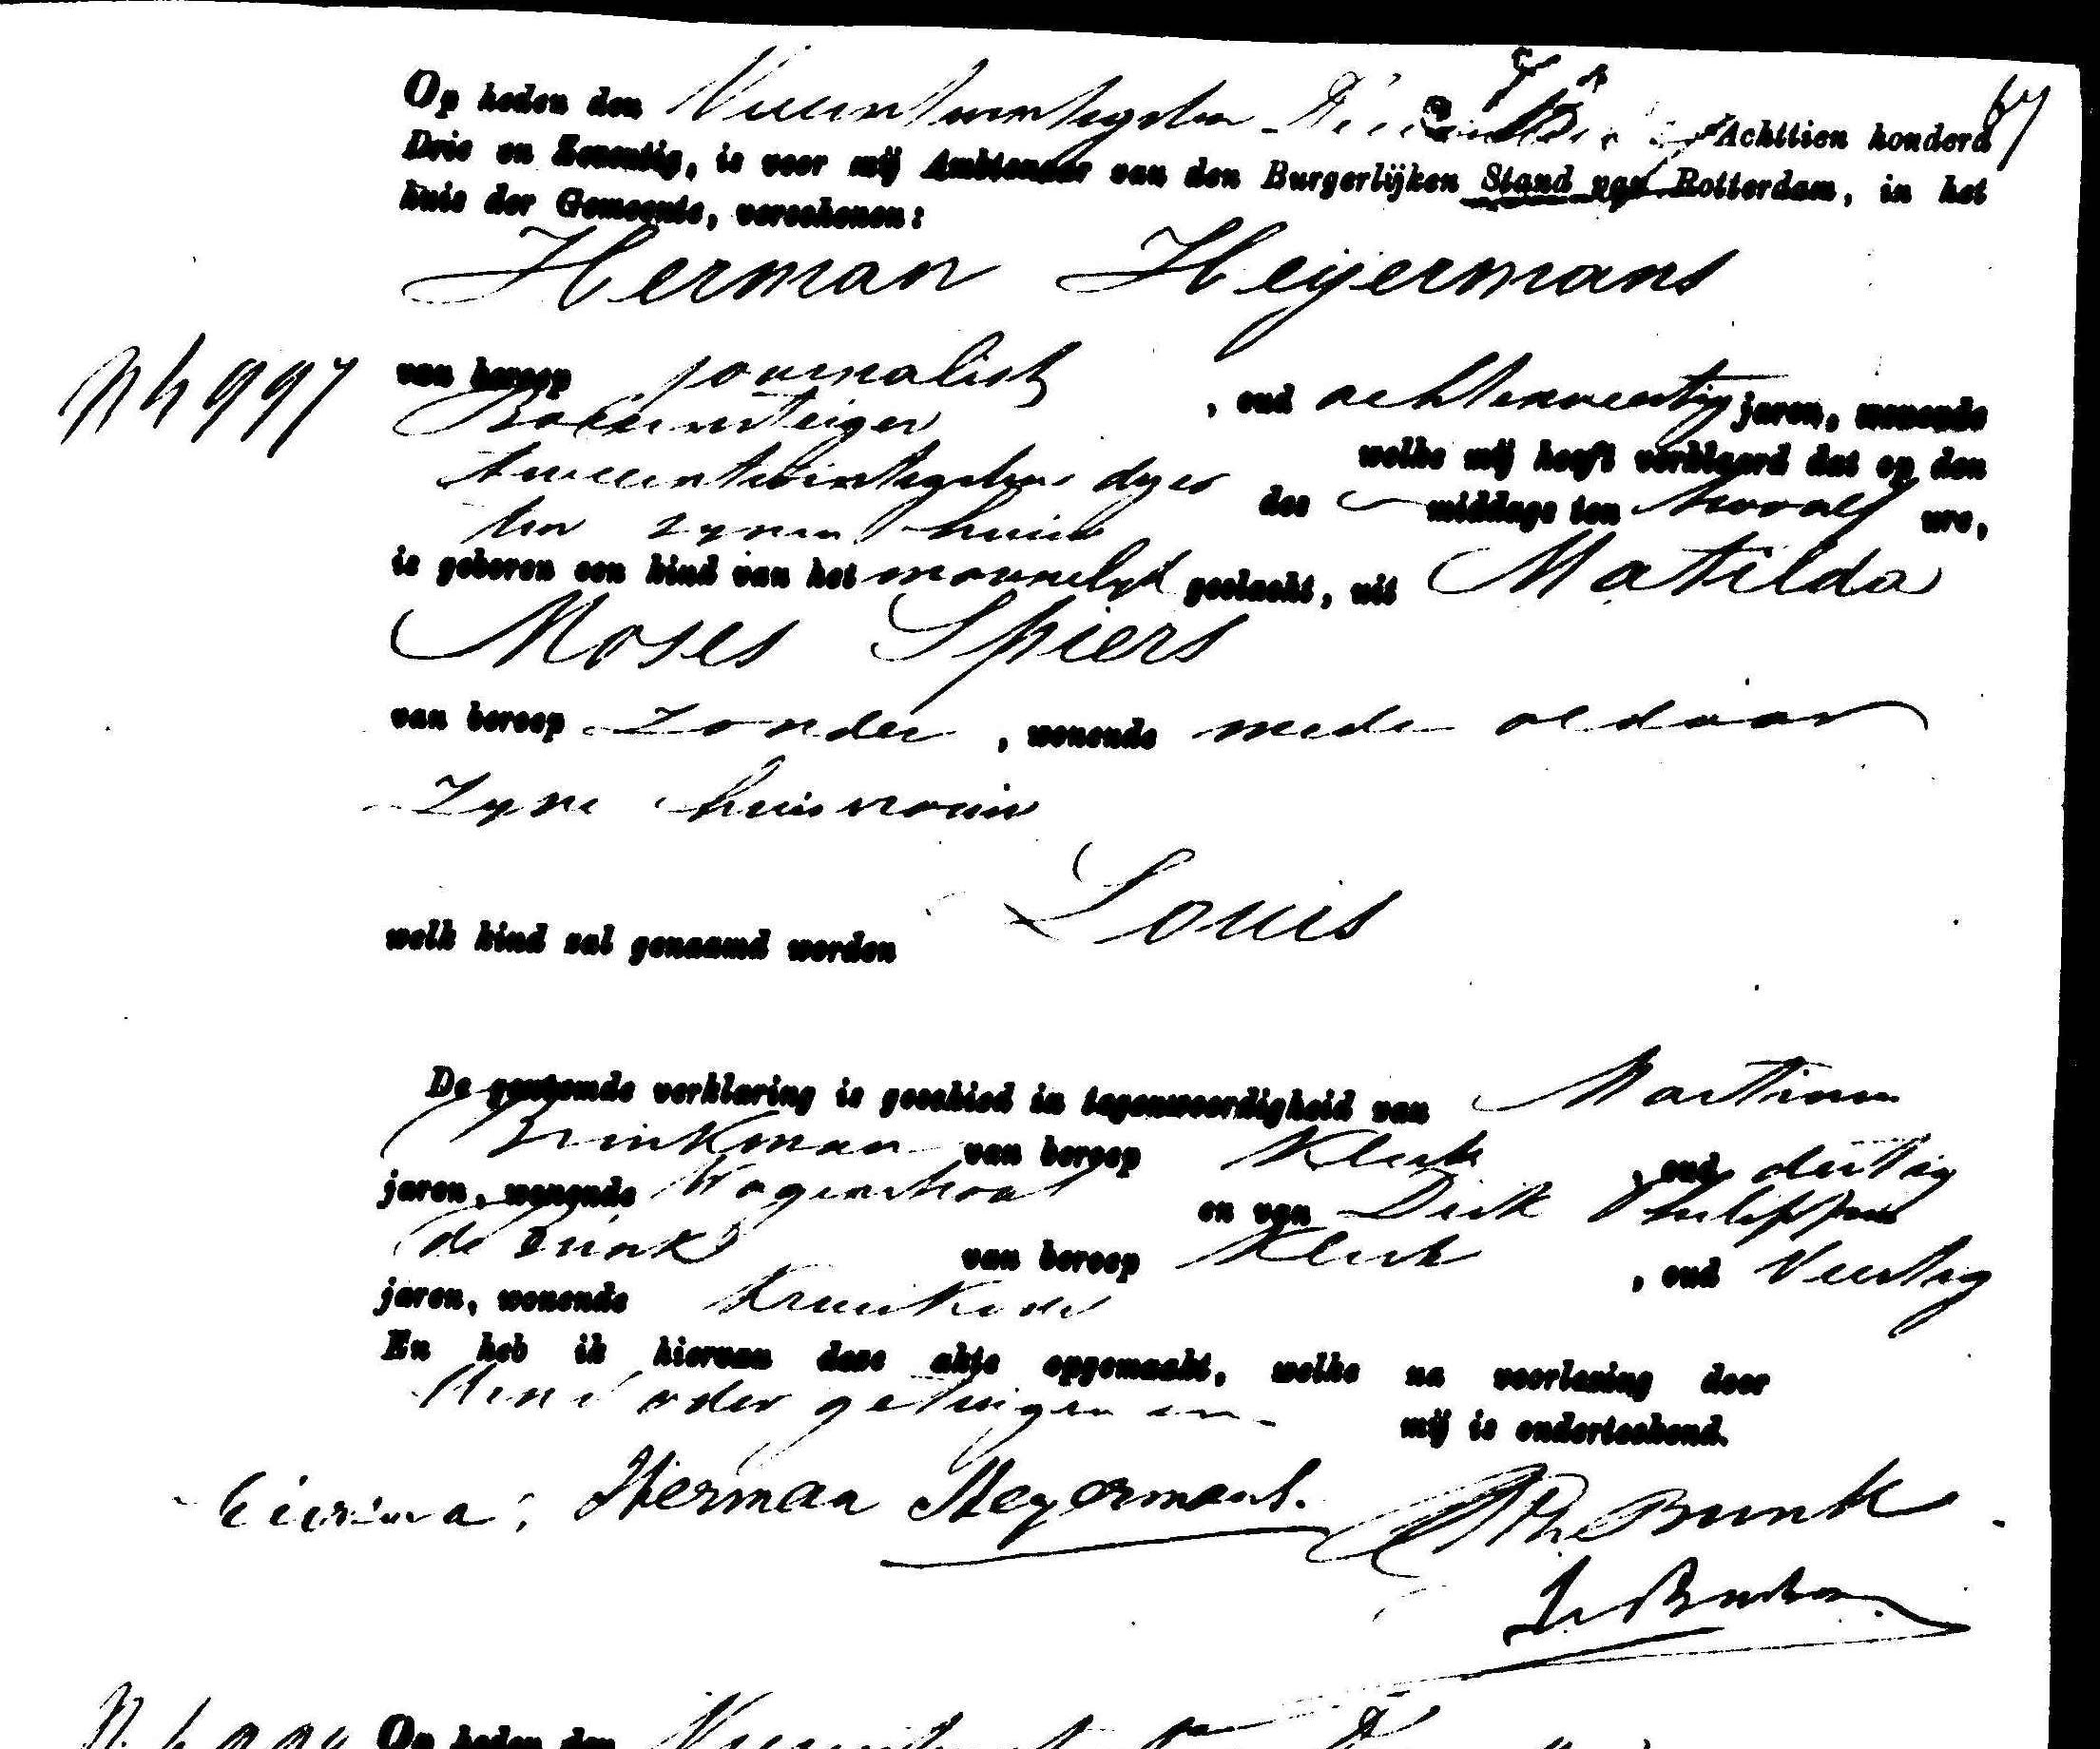 67
Op heden den Vierentwintigsten December Achttien honderd
Drie en Zeventig, is voor mij Ambtenaar van den Burgerlijken Stand van Rotterdam, in het
huis der Gemeente, verschenen:
Herman Heijermans
N 4997
van beroep journalist, oud achtenveertig jaren, wonende
welke mij heeft verklaard dat op den
tweentwintigsten dezer des middags ten twaalf ure,
ten zynen huize
is geboren een kind van het mannelyk geslacht, uit Matilda
Moses Spiers
van beroep zonder, wonende mede aldaar
Zyne huisvrouw
welk kind zal genaamd worden Louis
De genoemde verklaring is geschied in tegenwoordigheid van
Brinkman van beroep Klerk, oud dertig
jaren, wonende Wagenstraat en van Dirk Philippus
de Bunk van beroep Klerk, oud Veertig
jaren, wonende Kruiskade
En heb ik hiervan deze akte opgemaakt, welke na voorlezing door
getuigen en mij is onderteekend.
Herman Heyermans. DPh de Bunk
Op heden den